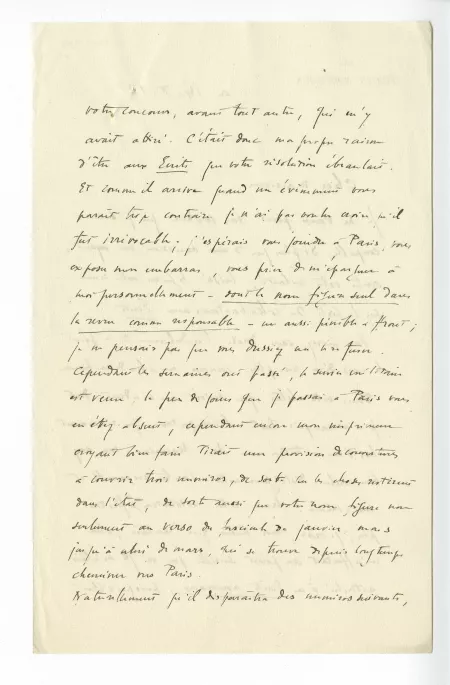 votre concours, avant tout autre, qui m'y
avait attiré. C'était donc ma propre raison
d'être aux Ecrits que votre résolution ébranlait.
Et comme il arrive quand un évènement vous
parait trop contraire je n'ai pas voulu croire qu'il
fut irrévocable ; j'espérais vous joindre à Paris, vous
exposer mon embarras, vous prier de m'épargner à
moi personnellement – dont le nom figure seul dans
la revue comme responsable – un aussi pénible affront ;
je ne pensais pas que vous dussiez me le refuser.
Cependant les semaines ont passé, le
est venu le peu de jours que je passai à Paris vous
en étiez absent, cependant encore mon imprimeur
croyant bien faire tirait une provision de couvertures
à couvrir trois numéros, de sorte que les choses restèrent
dans l'état, de sorte aussi que votre nom figure non
seulement au verso du fascicule de janvier mais
jusqu'à celui de mars, qui se trouve depuis longtemps
cheminer vers Paris.
Naturellement qu'il disparaîtra des numéros suivants,